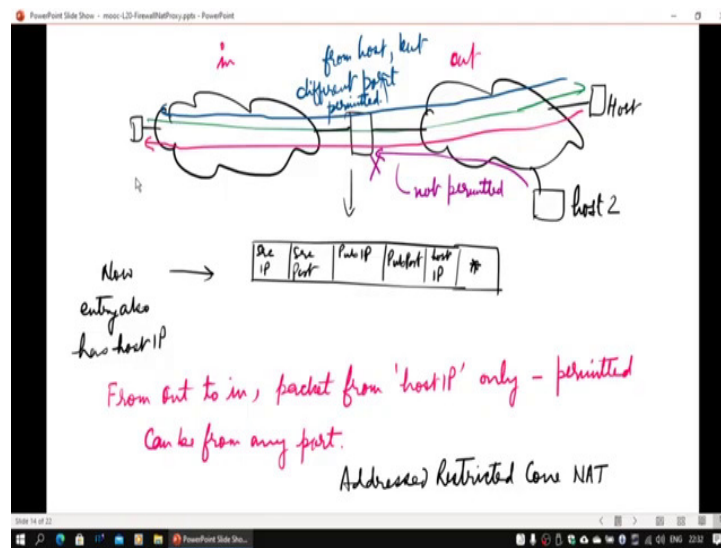 PowerPoint Slide Show - mooc-L20-FirewallNatProxy.pptx - PowerPoint
in
from host, but
different port
permitted
out
Host
not permitted
host 2
Src IP
Src Port
Pub IP
Pub Port
host IP
*
Now
entry also
has host IP
From out to in, packet from 'host IP' only – permitted
Can be from any port.
Addressed Restricted Cone NAT
Slide 14 of 22
PowerPoint Slide Sho...
ENG
22:32